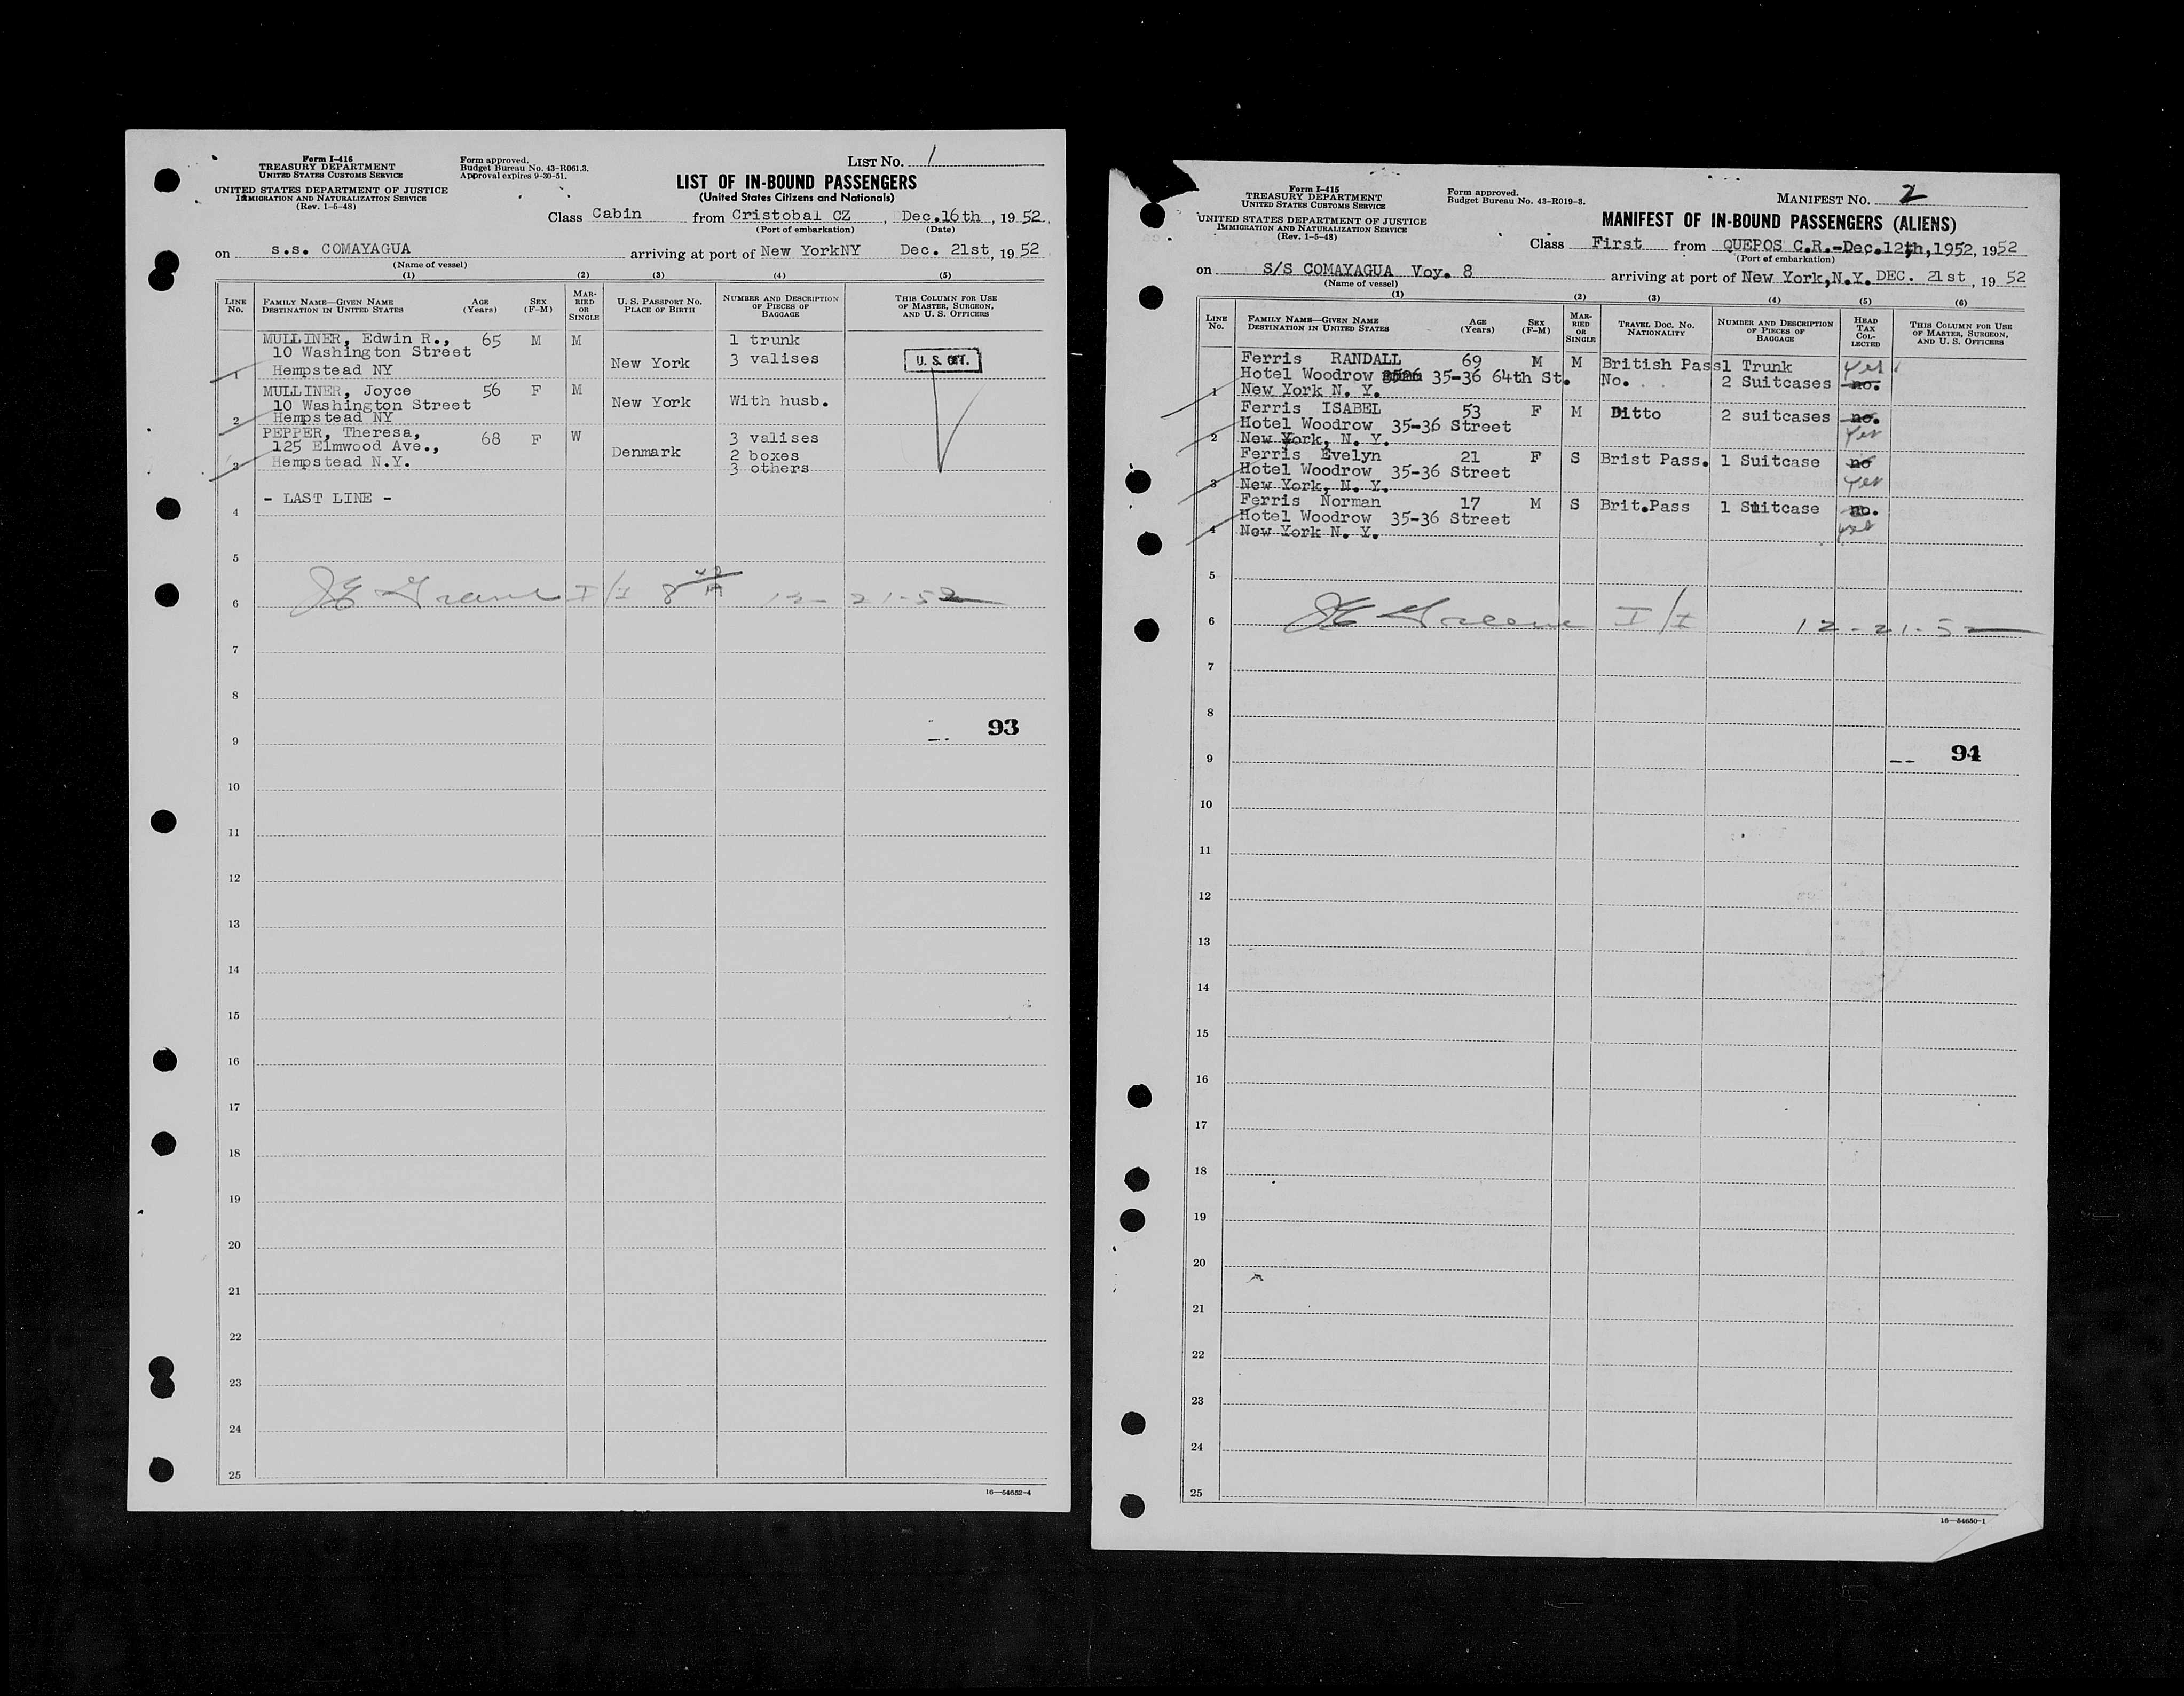 Form I-416
TREASURY DEPARTMENT
UNITED STATES CUSTOMS SERVICE
UNITED STATES DEPARTMENT OF JUSTICE
IMMIGRATION AND NATURALIZATION SERVICE
(Rev. 1-5-48)
Form approved.
Budget Bureau No. 43-R061.3.
Approval expires 9-30-51.
LIST NO. 1
LIST OF IN-BOUND PASSENGERS
(United States Citizens and Nationals)
Class Cabin from Cristobal CZ, Dec.16th, 1952
(Port of embarkation) (Date)
on s.s. COMAYAGUA arriving at port of New YorkNY Dec. 21st, 1952
(Name of vessel)
(1) (2) (3) (4) (5)
LINE No. FAMILY NAME—GIVEN NAME DESTINATION IN UNITED STATES AGE (Years) SEX (F-M) MARRIED OR SINGLE U. S. PASSPORT NO. PLACE OF BIRTH NUMBER AND DESCRIPTION OF PIECES OF BAGGAGE THIS COLUMN FOR USE OF MASTER, SURGEON, AND U. S. OFFICERS
MULLINER, Edwin R., 65 M M 1 trunk
10 Washington Street New York 3 valises U. S. CIT.
1 Hempstead NY
MULLINER, Joyce 56 F M
10 Washington Street New York With husb.
2 Hempstead NY
PEPPER, Theresa, 68 F W 3 valises
125 Elmwood Ave., Denmark 2 boxes
3 Hempstead N.Y. 3 others
- LAST LINE -
4
5
6 JE Greene I/I 12-21-52
7
8
93
9
10
11
12
13
14
15
16
17
18
19
20
21
22
23
24
25
16—54652-4
Form I-415
TREASURY DEPARTMENT
UNITED STATES CUSTOMS SERVICE
UNITED STATES DEPARTMENT OF JUSTICE
IMMIGRATION AND NATURALIZATION SERVICE
(Rev. 1-5-48)
Form approved.
Budget Bureau No. 43-R019-3.
MANIFEST NO. 2
MANIFEST OF IN-BOUND PASSENGERS (ALIENS)
Class First from QUEPOS C.R.-Dec.12th,1952, 1952
(Port of embarkation)
on S/S COMAYAGUA Voy. 8 arriving at port of New York,N.Y. DEC. 21st, 19 52
(Name of vessel)
(1) (2) (3) (4) (5) (6)
LINE No. FAMILY NAME—GIVEN NAME DESTINATION IN UNITED STATES AGE (Years) SEX (F-M) MARRIED OR SINGLE TRAVEL DOC. NO. NATIONALITY NUMBER AND DESCRIPTION OF PIECES OF BAGGAGE HEAD TAX COLLECTED THIS COLUMN FOR USE OF MASTER, SURGEON, AND U. S. OFFICERS
Ferris RANDALL 69 M M British Pass 1 Trunk Yes
Hotel Woodrow 35-36 64th St. No. 2 Suitcases no.
1 New York N. Y.
Ferris ISABEL 53 F M Ditto 2 suitcases no.
Hotel Woodrow 35-36 Street Yes
2 New York, N. Y.
Ferris Evelyn 21 F S Brist Pass. 1 Suitcase no
Hotel Woodrow 35-36 Street Yes
3 New York, N. Y.
Ferris Norman 17 M S Brit.Pass 1 Suitcase no.
Hotel Woodrow 35-36 Street yes
4 New York N. Y.
5
6 JE Greene I/I 12-21-52
7
8
94
9
10
11
12
13
14
15
16
17
18
19
20
21
22
23
24
25
16—54650-1